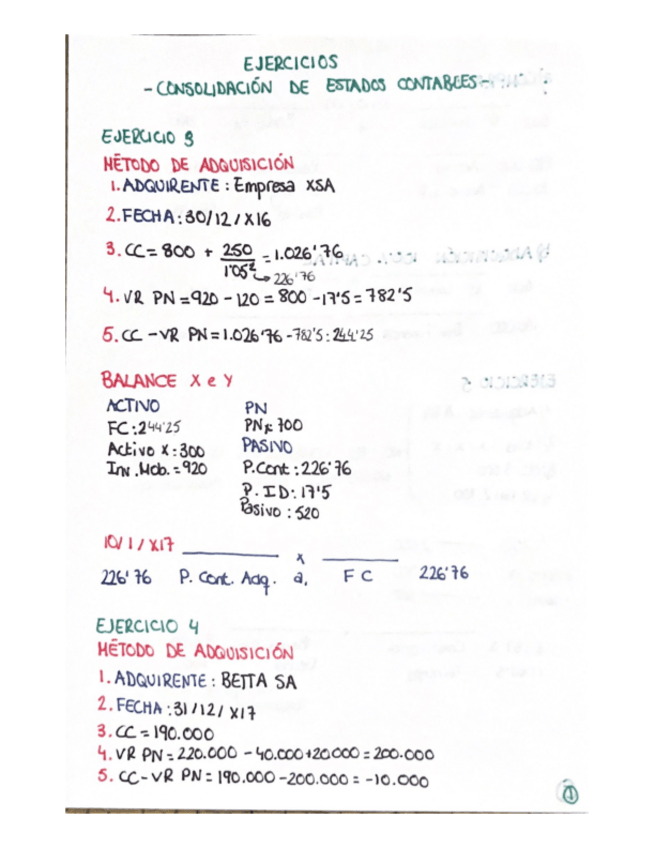 EJERCICIOS
- CONSOLIDACIÓN DE ESTADOS CONTABLES -
EJERCICIO 3
MÉTODO DE ADQUISICIÓN
1. ADQUIRENTE : Empresa XSA
2. FECHA : 30/12/X16
3. CC = 800 + 250/1'05² = 1.026'76
↳ 226'76
4. VR PN = 920 - 120 = 800 - 17'5 = 782'5
5. CC - VR PN = 1.026'76 - 782'5 : 244'25
BALANCE X e Y
ACTIVO
FC : 244'25
Activo X : 300
Inv. Mob. = 920
PN
PNx 700
PASIVO
P. Cont : 226'76
P. ID : 17'5
Pasivo : 520
10/1/X17 ________ x ________
226'76 P. Cont. Adq. a, FC 226'76
EJERCICIO 4
MÉTODO DE ADQUISICIÓN
1. ADQUIRENTE : BETTA SA
2. FECHA : 31/12/X17
3. CC = 190.000
4. VR PN = 220.000 - 40.000 + 20000 = 200.000
5. CC - VR PN = 190.000 - 200.000 = -10.000
1